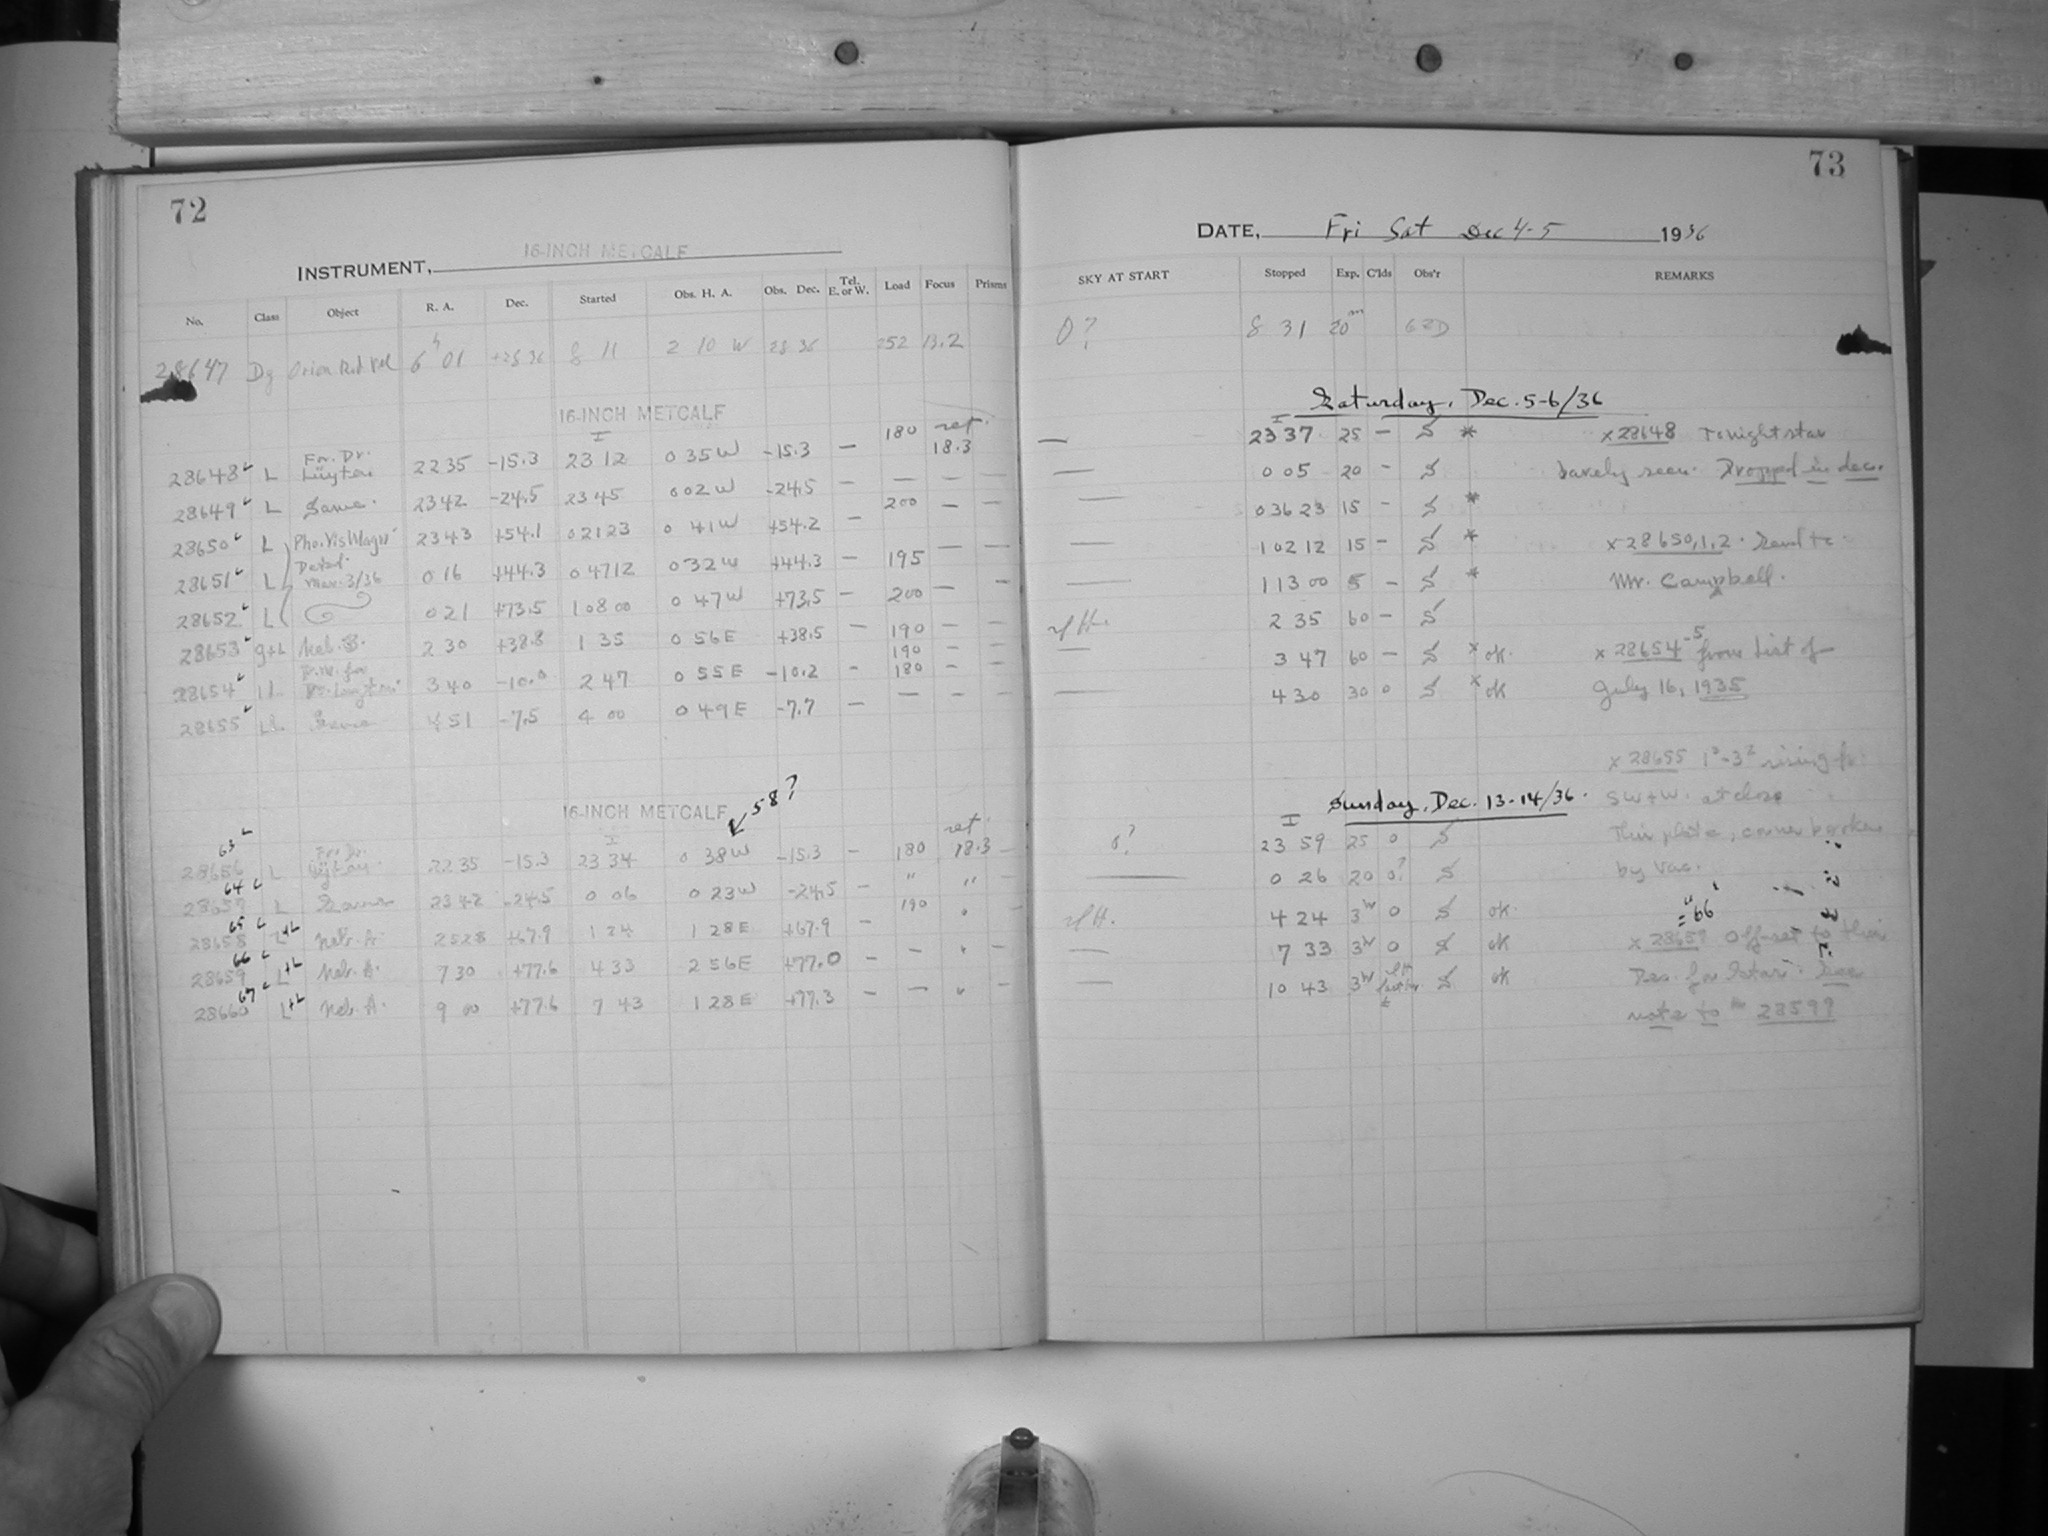 72
INSTRUMENT, 16-INCH METCALF
No. Class Object R. A. Dec. Started Obs. H. A. Obs. Dec. Tel. E. or W. Load Focus Prisms
28647 Dg Orion Red 6h 01 +28 36 8 11 2 10 W 28 36 252 13.2
16-INCH METCALF
I ret.
28648 L For Dr. Lüyten 22 35 -15.3 23 12 0 35 W -15.3 — 180 18.3
28649 L Same. 23 42 -24.5 23 45 0 02 W -24.5 — — — —
28650 L Pho. Vis Magns 23 43 +54.1 0 21 23 0 41 W +54.2 — 200 — —
28651 L Detail. Mar. 3/36 0 16 +44.3 0 47 12 0 32 W +44.3 — 195 — —
28652 L 0 21 +73.5 1 08 00 0 47 W +73.5 — 200 — —
28653 g+L Neb. B. 2 30 +38.8 1 35 0 56 E +38.5 — 190 — —
190 — —
28654 LL for Dr. Luyten 3 40 -10.0 2 47 0 55 E -10.2 - 180 - —
28655 LL Same 4 51 -7.5 4 00 0 49 E -7.7 — — — —
16-INCH METCALF
58?
I ret.
63
28656 L For Dr. Lüyten 22 35 -15.3 23 34 0 38 W -15.3 — 180 18.3 —
64
28657 L Same 23 42 -24.5 0 06 0 23 W -24.5 — " "
65
28658 L+L Neb. A. 2 52 8 +67.9 1 24 1 28 E +67.9 — 190 " —
66
28659 L+L Neb. A. 7 30 +77.6 4 33 2 56 E +77.0 — — " —
67
28660 L+L Neb. A. 9 00 +77.6 7 43 1 28 E +77.3 — — " —
73
DATE, Fri Sat Dec 4-5 1936
SKY AT START Stopped Exp. C'lds Obs'r REMARKS
0? 8 31 20m
Saturday, Dec. 5-6/36
I
— 23 37 25 — S * x 28648 Tonight star
— 0 05 20 - S barely seen. Dropped in dec.
— 0 36 23 15 - S *
— 1 02 12 15 — S * x 28650,1,2. Send to
— 1 13 00 5 — S * Mr. Campbell.
2 35 60 — S
— 3 47 60 — S x ok. x 28654-5 from List of
— 4 30 30 0 S x ok July 16, 1935
x 28655 1²-3² rising fr.
SW+W. at close
Sunday, Dec. 13-14/36.
I
0? 23 59 25 0 S This plate, corner broken
— 0 26 20 0? S by vac.
4 24 3 0 S ok. = 66
— 7 33 3 0 S ok x 28659 Off-set to this
— 10 43 3 S ok Dec. for Stars. See
note to 28599